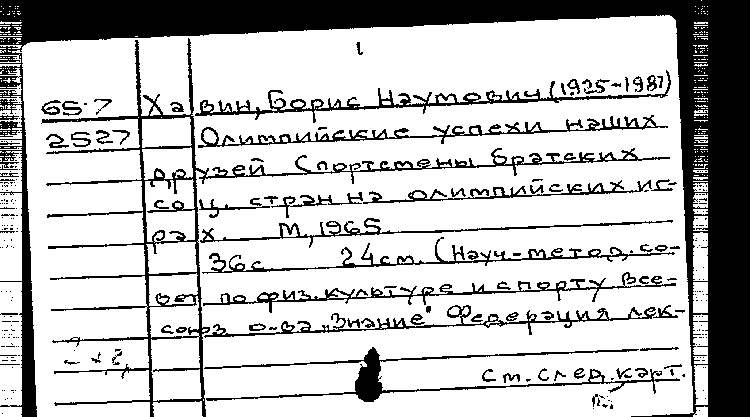 1
65-7 Хавин, Борис Наумович (1925-1987)
2527 Олимпийские успехи наших
друзей Спортсмены братских
соц. стран на олимпийских иг-
рах. М, 1965.
36с. 24см. (Науч-метод. со-
вет по физ. культуре и спорту Все-
союз о-ва „Знание" Федерация лек-
см. след. карт.